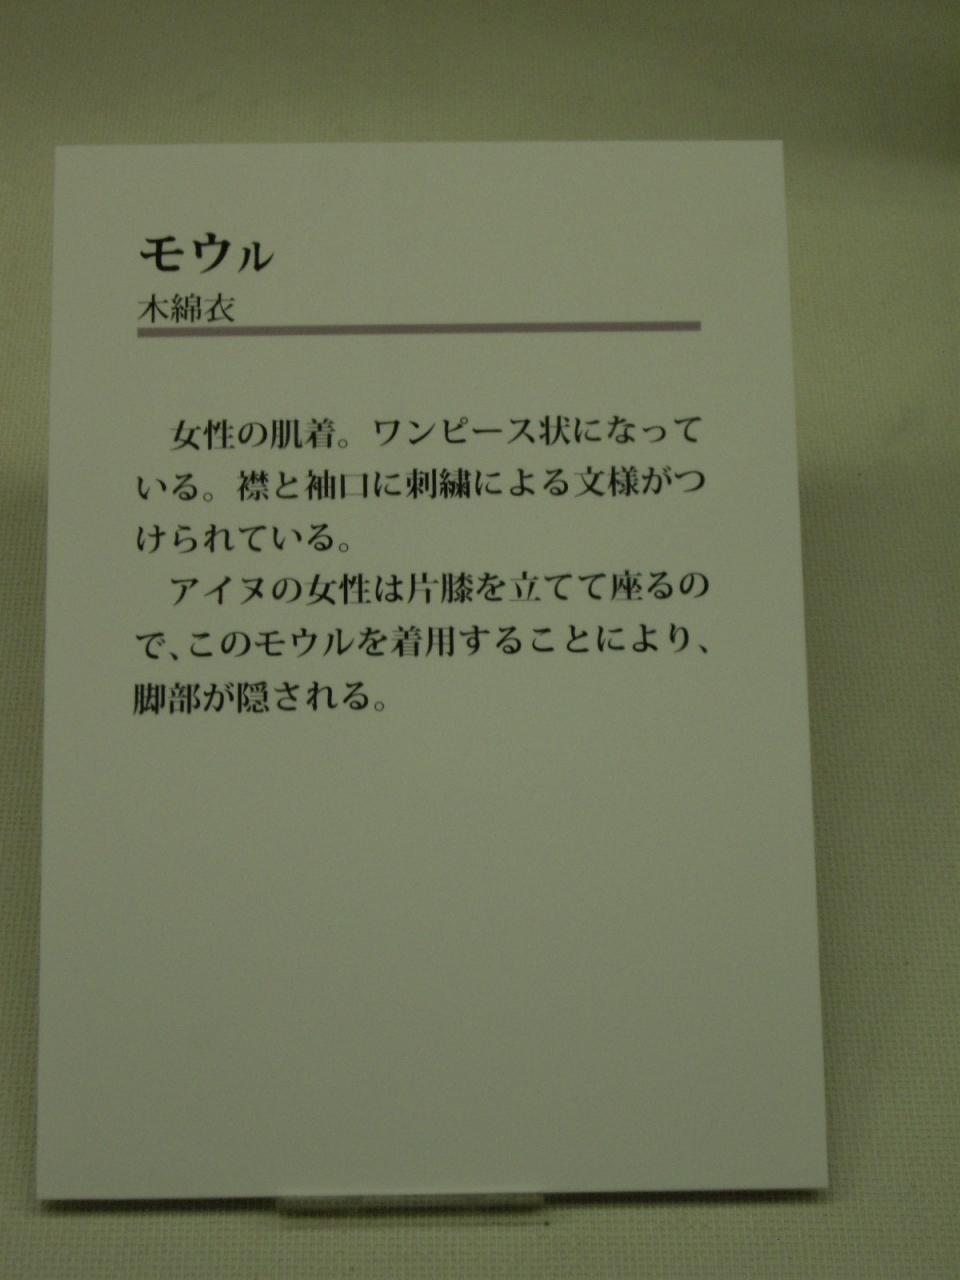 モウㇽ
木綿衣
女性の肌着。ワンピース状になって
いる。襟と袖口に刺繍による文様がつ
けられている。
アイヌの女性は片膝を立てて座るの
で、このモウルを着用することにより、
脚部が隠される。